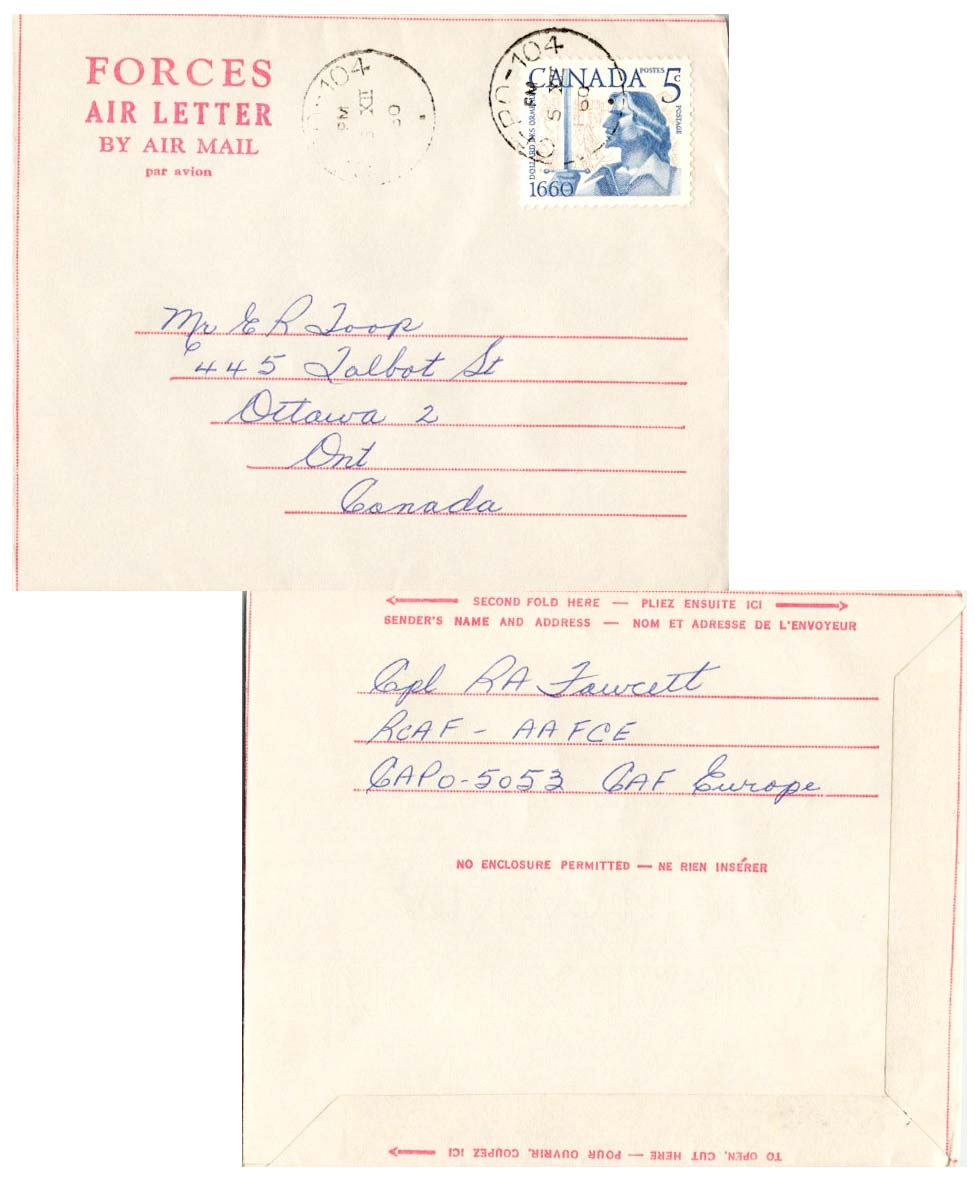 FORCES
AIR LETTER
BY AIR MAIL
par avion
O-104
PM
XII
60
CAPO-104
PM
5 XII
60
CANADA POSTES 5c
POSTAGE
DOLLARD DES ORMEAUX
1660
Mr E R Toop
445 Talbot St
Ottawa 2
Ont
Canada
SECOND FOLD HERE — PLIEZ ENSUITE ICI
SENDER'S NAME AND ADDRESS — NOM ET ADRESSE DE L'ENVOYEUR
Cpl RA Fawcett
RCAF - AAFCE
CAPO-5053 CAF Europe
NO ENCLOSURE PERMITTED — NE RIEN INSÉRER
TO OPEN, CUT HERE — POUR OUVRIR, COUPEZ ICI